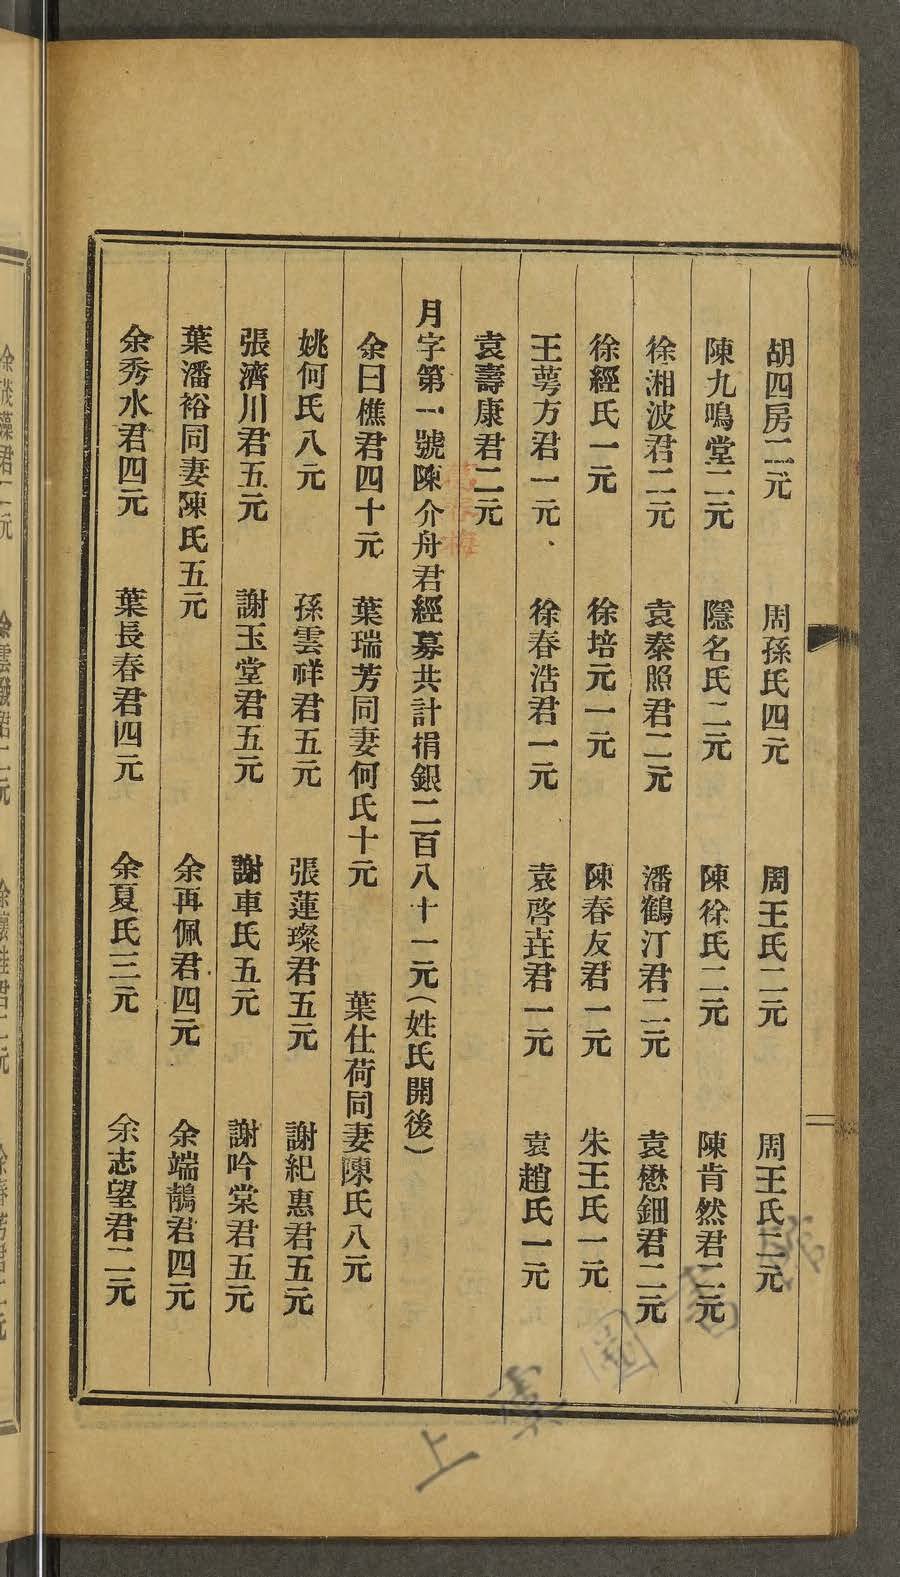 胡四房二元　周孫氏四元　周王氏二元　周王氏二元
陳九鳴堂二元　隱名氏二元　陳徐氏二元　陳肯然君二元
徐湘波君二元　袁泰照君二元　潘鶴汀君二元　袁懋鈿君二元
徐經氏一元　徐培元一元　陳春友君一元　朱王氏一元
王萼方君一元　徐春浩君一元　袁啓君一元　袁趙氏一元
袁壽康君二元
月字第一號陳介舟君經募共計捐銀二百八十一元（姓氏開後）
余曰樵君四十元　葉瑞芳同妻何氏十元　葉仕荷同妻陳氏八元
姚何氏八元　孫雲祥君五元　張蓮璨君五元　謝紀惠君五元
張濟川君五元　謝玉堂君五元　謝車氏五元　謝吟棠君五元
葉潘裕同妻陳氏五元　余再佩君四元　余端鵲君四元
余秀水君四元　葉長春君四元　余夏氏三元　余志望君二元
上虞圖書館